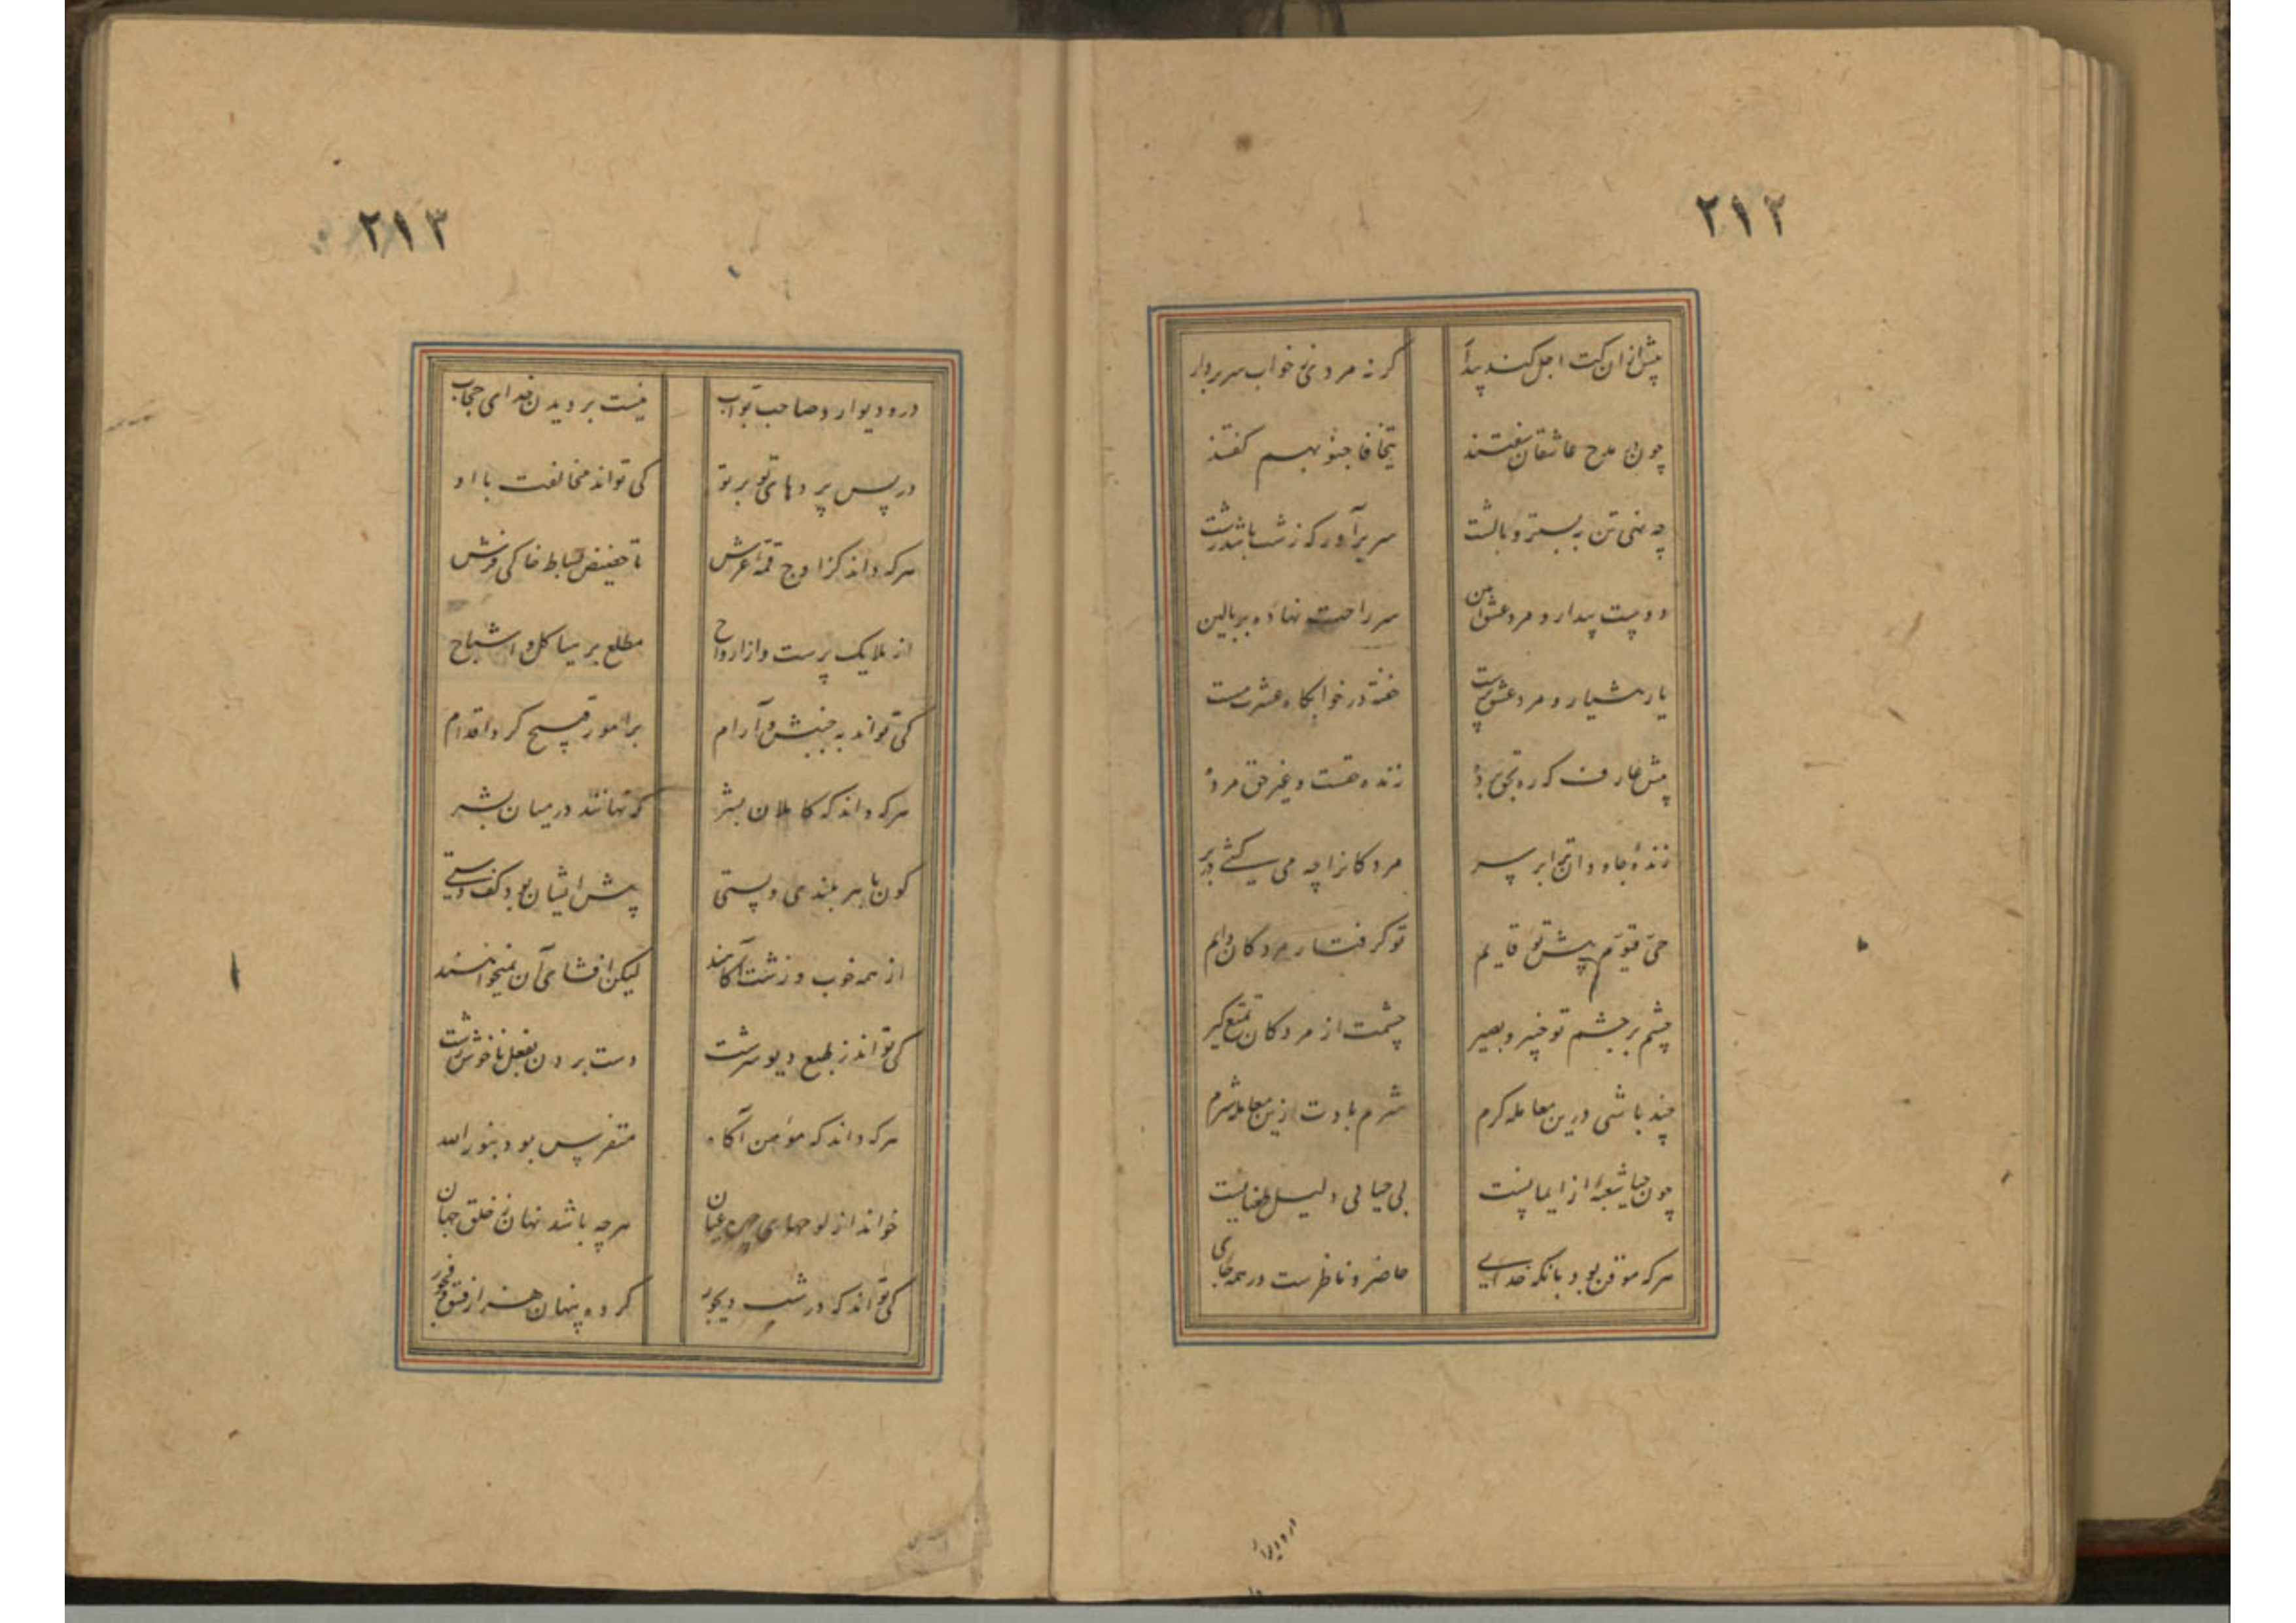 ٢١٢
پیش ازان کت اجل کند بیدار گر نه مردی ز خواب سر بردار
چون پی مدح عاشقان سفتند تتجافا جنوبهم گفتند
چه نهی تن به بستر و بالشت سر برآور که زشت باشد زشت
دوست بیدار و مرد عشق آیین سر راحت نهاده بر بالین
یار هشیار و مرد عشق پرست خفته در خوابگاه عشرت مست
پیش عارف که ره بحق برده زنده حقست و غیر حق مرده
زنده جاودان ترا بر سر مردگانرا چه می کشی در بر
حی قیوم پیش تو قایم تو گرفتار مردگان دایم
چشم بر چشم تو خبیر و بصیر چشمت از مردگان تمتع گیر
چند باشی درین معامله گرم شرم بادت ازین معامله شرم
چون حیا شعبهٔ از ایمانست بی حیایی دلیل طغیانست
هر که موقن بود بانکه خدای حاضر و ناظرست در همه جای
در و دیوار
٢١٣
در و دیوار و صاحب بواب نیست بر دیدن خدای حجاب
در پس پردهای تو بر تو کی تواند مخالفت با او
هر که داند کز اوج قمهٔ عرش تا حضیض بساط خاکی فرش
از ملایک پرست و از ارواح مطلع بر هیاکل و اشباح
کی تواند به جنبش و آرام بر امور قبیح کرد اقدام
هر که داند که کاملان بشر که نهانند در میان بشر
کون با هر بلندی و پستی پیش ایشان بود کف دستی
از همه خوب و زشت آگاهند لیکن افشای آن نمیخواهند
کی تواند ز طبع دیو سرشت دست بردن بفعل ناخوش و زشت
هر که داند که مؤمن آگاه متفرس بود بنور الله
خواند از لوحهای عیان هر چه باشد نهان ز خلق جهان
کی تواند که در شب دیجور کرده پنهان هنر از فسق و فجور